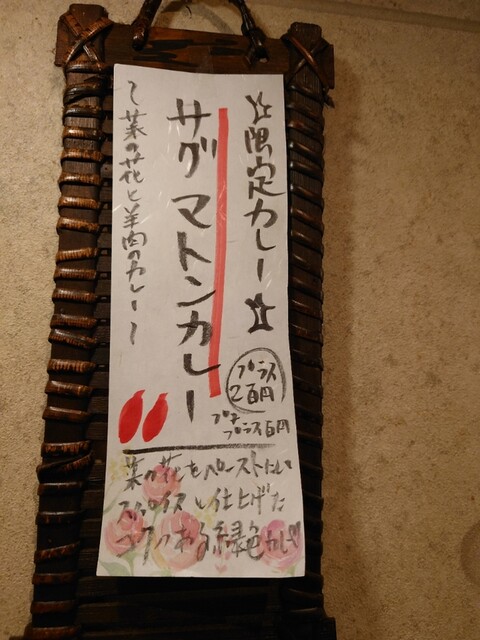 ☆限定カレー☆
サグ マトンカレー
〜菜の花と羊肉のカレー〜
プラス
2百円
プチ
プラス百円
菜の花をペーストにし
スパイスと仕上げた
コクのある緑色カレー